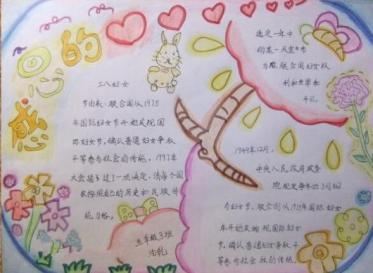 感恩的心
三八妇女
节由来:联合国从1975
年国际妇女节开始庆祝国
际妇女节,确认普通妇女争取
平等参与社会的传统。1997年
大会通过了一项决议,请每个国
家按照自己的历史和民族传
统习俗,
五年级3班
选定一年中
的某一天宣布
为联合国妇女权
利和世界和
平日。
1949年12月,
中央人民政府政务
院规定每年的3月8日
为妇女节。联合国从1975年国际妇女
年开始庆祝国际妇
女节,确认普通妇女争取平
等参与社会的传统。